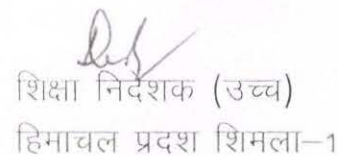 शिक्षा निदेशक (उच्च)
हिमाचल प्रदेश शिमला–1